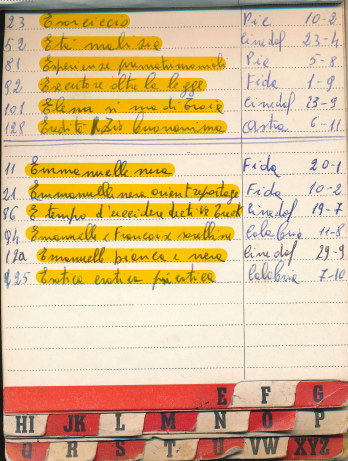 23 Esorciccio Pic 10-2
52 Età malizia Cinedaf 23-4
81 Esperienze prematrimoniali Pic 5-8
92 Executor oltre la legge Fida 1-9
101 Elena si ma di Troia Cinedaf 23-9
128 Eredità Zio buonanima Astra 6-11
11 Emmanuelle nera Fida 20-1
21 Emmanuelle nera orient reportage Fida 10-2
86 È tempo d'uccidere detective Treck Cinedaf 19-7
94 Emanuelle e Francoise sorelline Calabria 11-8
Emanuelle bianca e nera Cinedaf 29-9
125 Erotica Calabria 7-10
E F G
HI JK L M N O P
Q R S T U VW XYZ